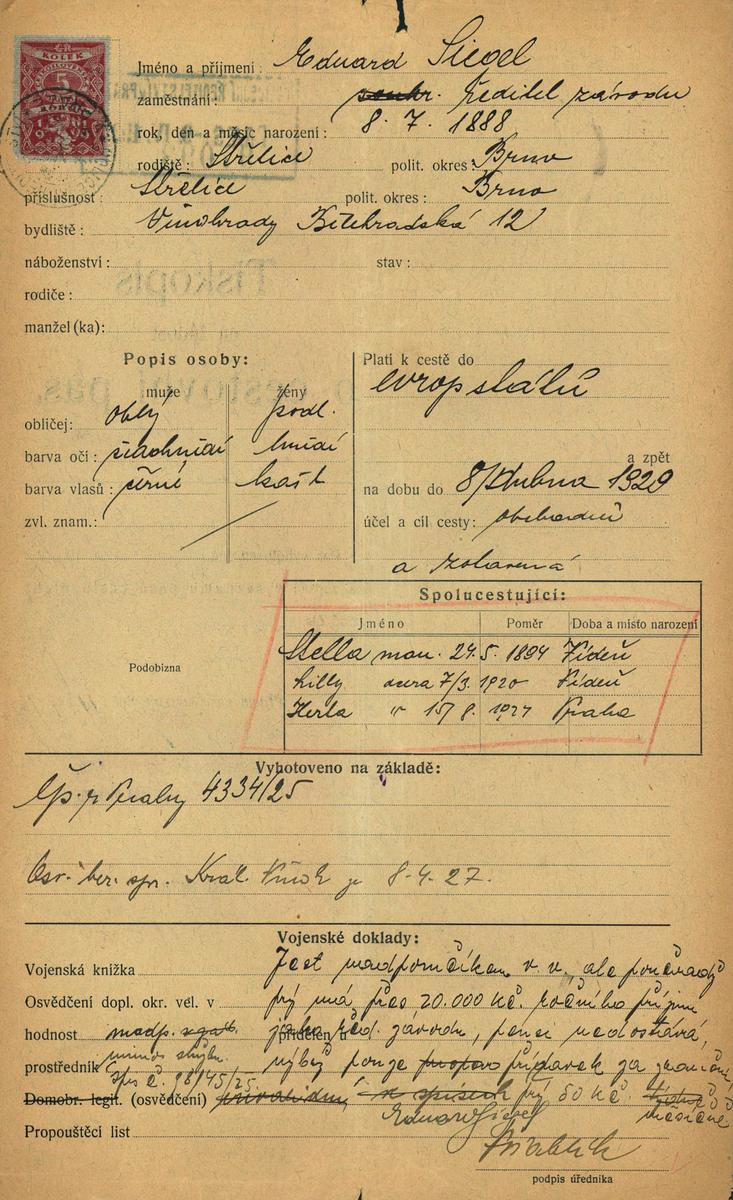 KOLEK
5
Jméno a příjmení : Eduard Siegel
zaměstnání : ředitel závodu
rok, den a měsíc narození : 8. 7. 1888
rodiště : Střelice polit. okres : Brno
příslušnost : Střelice polit. okres : Brno
bydliště : Vinohrady Bělehradská 12
náboženství : stav :
rodiče :
manžel (ka):
Popis osoby:
muže ženy
obličej: oblý podl.
barva očí : hnědí
barva vlasů : černé kašt
zvl. znam. :
Platí k cestě do
evrop států
a zpět
na dobu do 8/dubna 1929
účel a cíl cesty : obchodní
a
Spolucestující:
Jméno Poměr Doba a místo narození
Stella man. 24. 5. 1894 Vídeň
Lilly dcera 7/3. 1920 Vídeň
Herta " 15/8. 1927 Praha
Podobizna
Vyhotoveno na základě:
Praha 4334/25
Osv. ber. spr. Král. Vinoh. 8-4-27.
Vojenské doklady:
Vojenská knížka Jest nadporučíkem v. v., ale
Osvědčení dopl. okr. vel. v prý má přes 20.000 Kč. ročního příjmu
hodnost nadp. přidělen u jako řed. závodu, penzi nedostává,
prostředník mimo službu. přídavek za
Domobr. legit. (osvědčení) prý 50 Kč. měsíčně
Eduard Siegel
Propouštěcí list
podpis úředníka